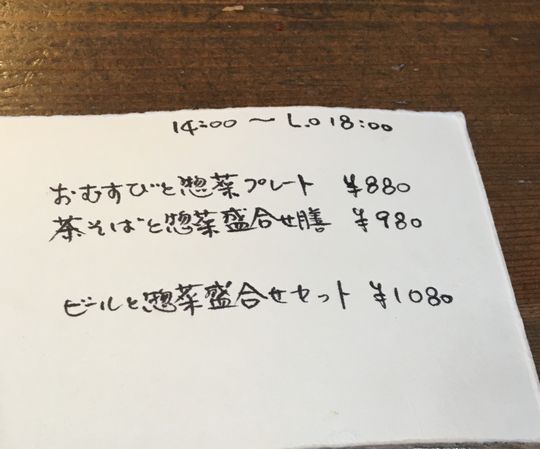 14:00 〜 L.O 18:00
おむすびと惣菜プレート ¥880
茶そばと惣菜盛合せ膳 ¥980
ビールと惣菜盛合せセット ¥1080